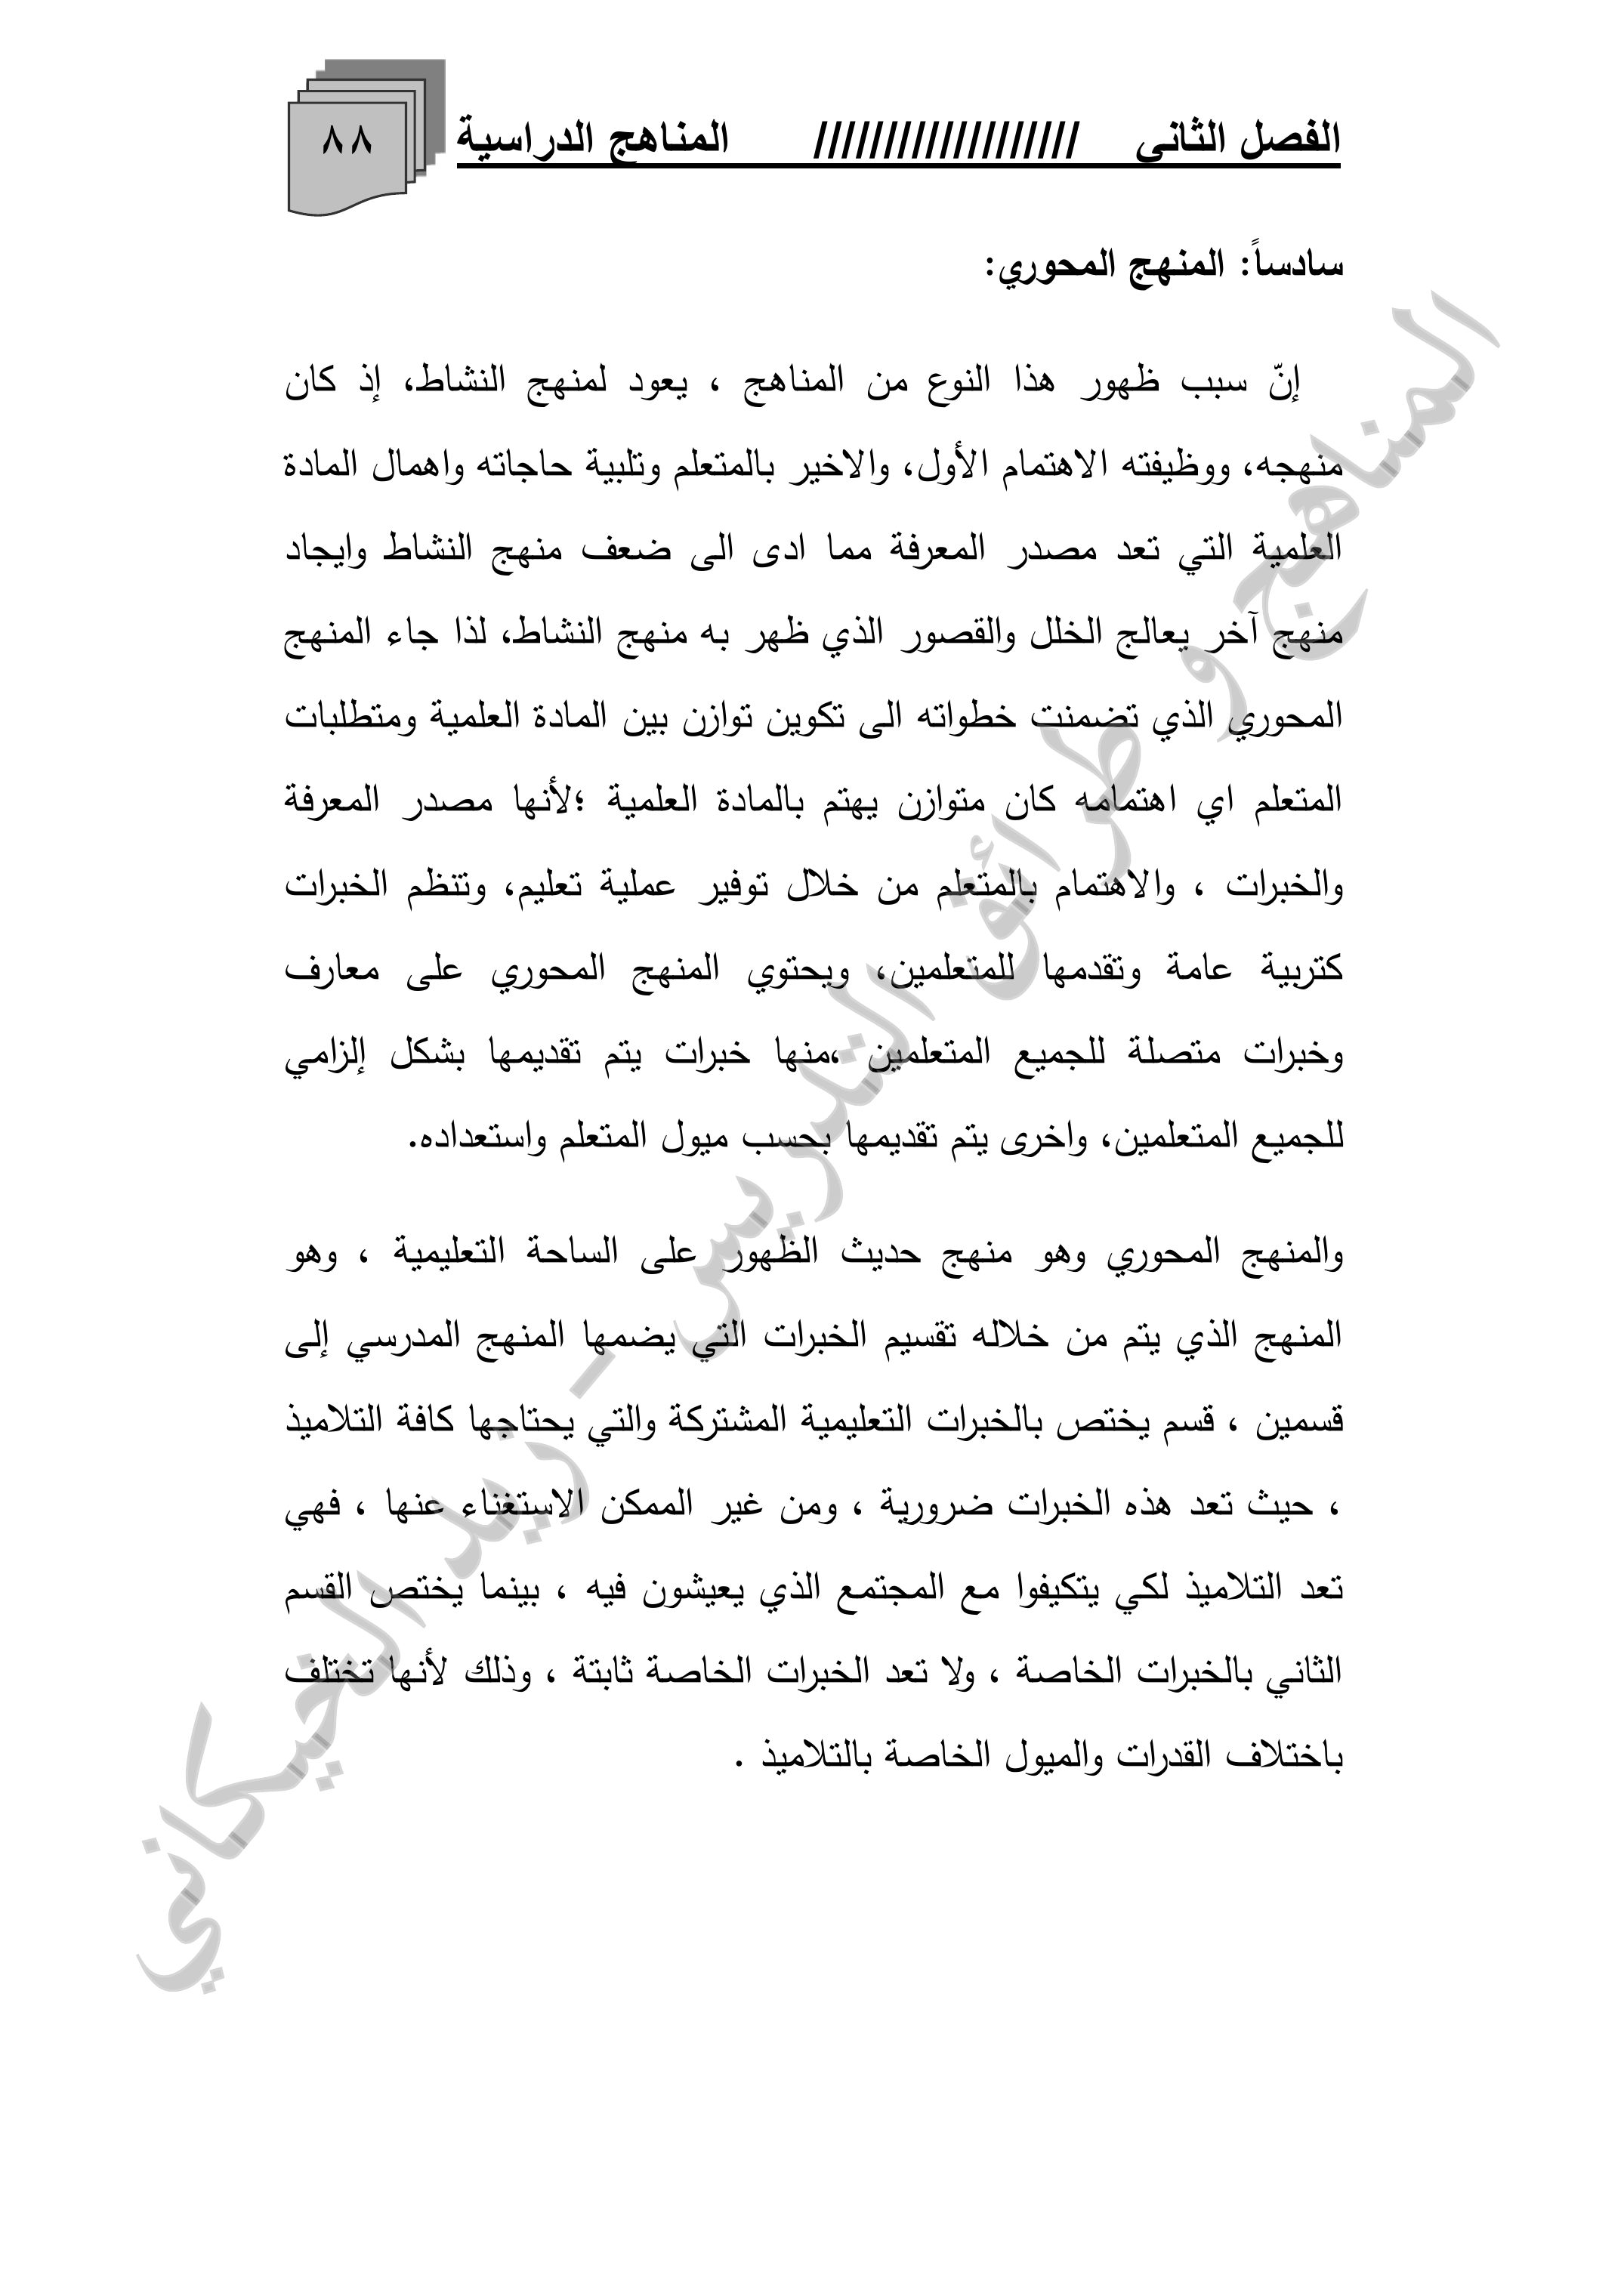 الفصل الثاني /////////////////// المناهج الدراسية ٨٨
سادساً: المنهج المحوري:
إنّ سبب ظهور هذا النوع من المناهج ، يعود لمنهج النشاط، إذ كان
منهجه، ووظيفته الاهتمام الأول، والاخير بالمتعلم وتلبية حاجاته واهمال المادة
العلمية التي تعد مصدر المعرفة مما ادى الى ضعف منهج النشاط وايجاد
منهج آخر يعالج الخلل والقصور الذي ظهر به منهج النشاط، لذا جاء المنهج
المحوري الذي تضمنت خطواته الى تكوين توازن بين المادة العلمية ومتطلبات
المتعلم اي اهتمامه كان متوازن يهتم بالمادة العلمية ؛لأنها مصدر المعرفة
والخبرات ، والاهتمام بالمتعلم من خلال توفير عملية تعليم، وتنظم الخبرات
كتربية عامة وتقدمها للمتعلمين، ويحتوي المنهج المحوري على معارف
وخبرات متصلة للجميع المتعلمين ،منها خبرات يتم تقديمها بشكل إلزامي
للجميع المتعلمين، واخرى يتم تقديمها بحسب ميول المتعلم واستعداده.
والمنهج المحوري وهو منهج حديث الظهور على الساحة التعليمية ، وهو
المنهج الذي يتم من خلاله تقسيم الخبرات التي يضمها المنهج المدرسي إلى
قسمين ، قسم يختص بالخبرات التعليمية المشتركة والتي يحتاجها كافة التلاميذ
، حيث تعد هذه الخبرات ضرورية ، ومن غير الممكن الاستغناء عنها ، فهي
تعد التلاميذ لكي يتكيفوا مع المجتمع الذي يعيشون فيه ، بينما يختص القسم
الثاني بالخبرات الخاصة ، ولا تعد الخبرات الخاصة ثابتة ، وذلك لأنها تختلف
باختلاف القدرات والميول الخاصة بالتلاميذ .
المناهج و طرائق التدريس - زيد الخيكاني